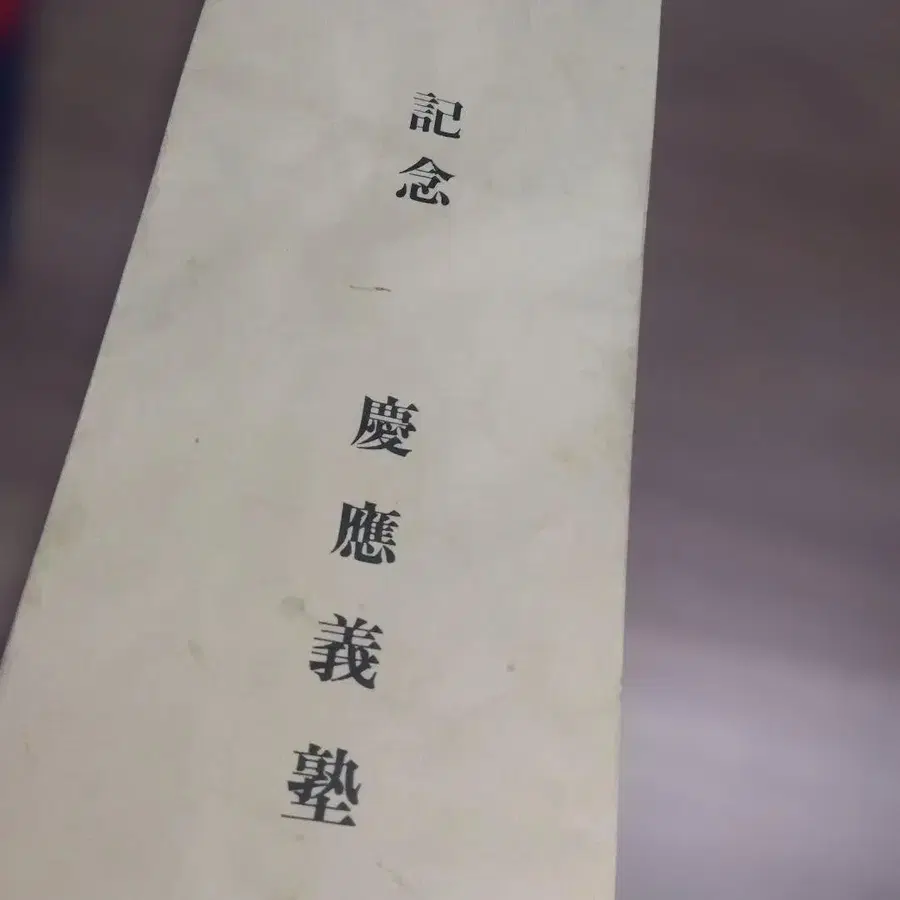 記念
慶應義塾